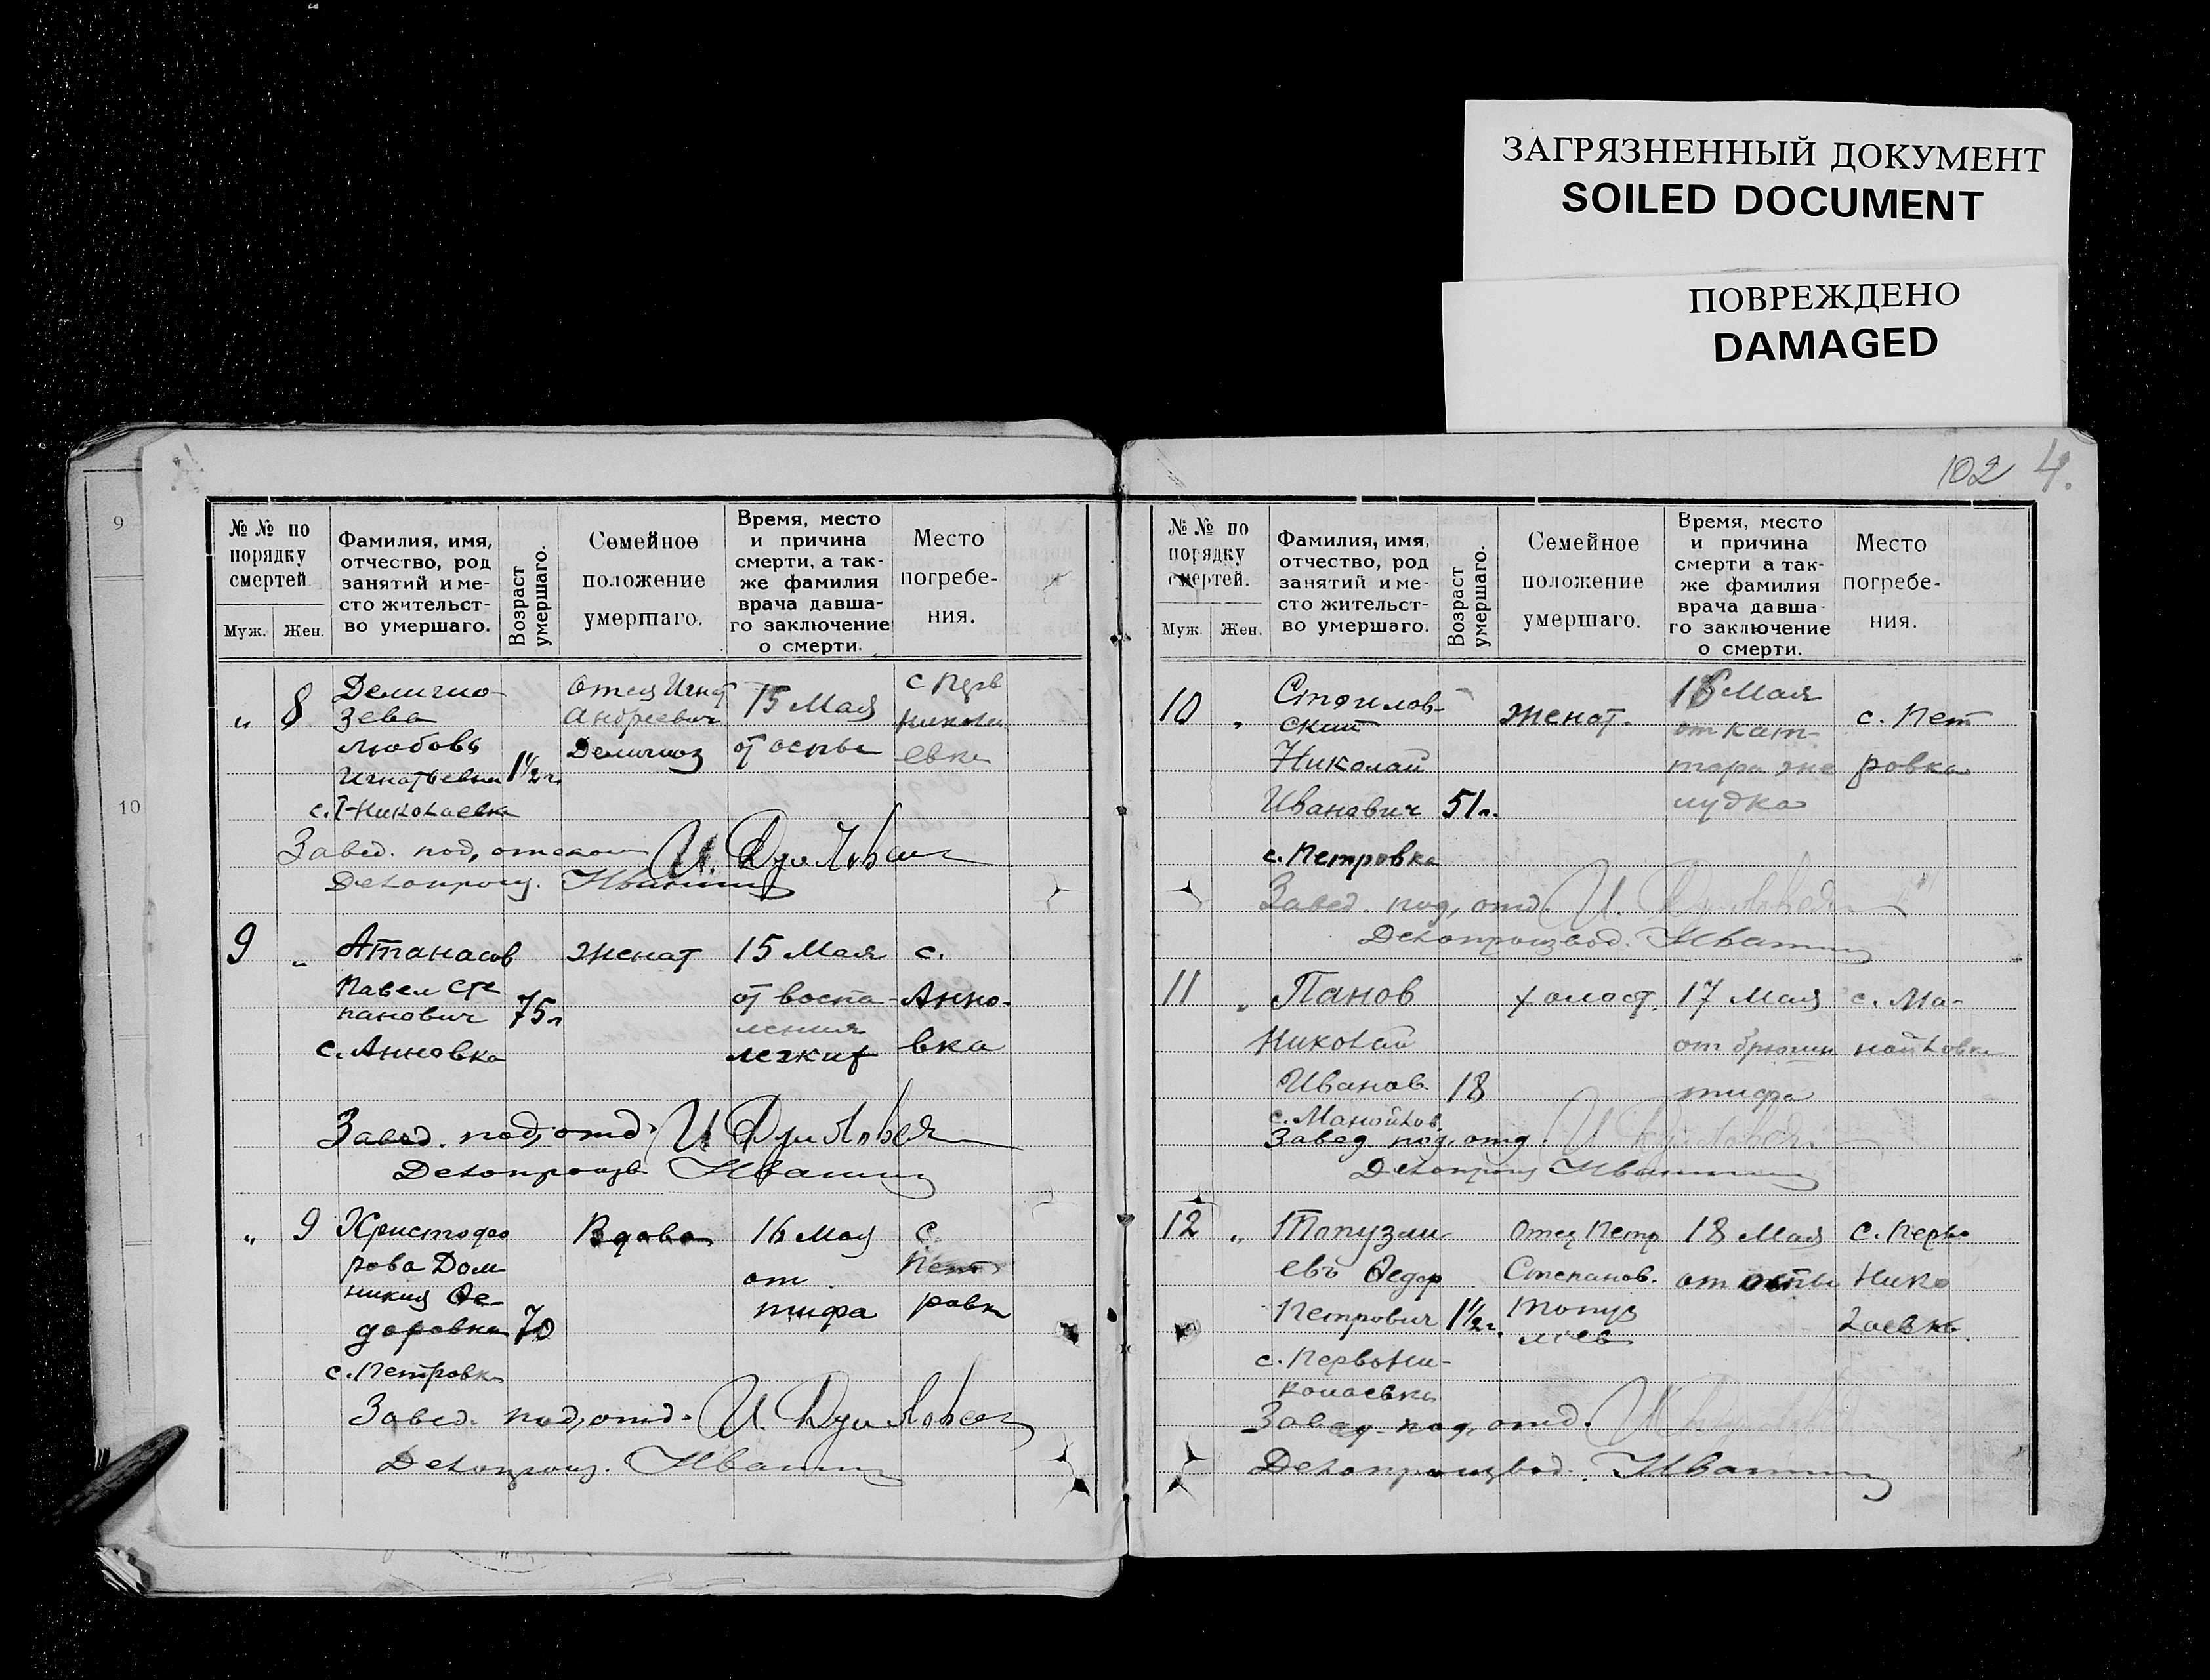 ЗАГРЯЗНЕННЫЙ ДОКУМЕНТ
SOILED DOCUMENT
ПОВРЕЖДЕНО
DAMAGED
9
10
1
№ № по порядку смертей.
Муж. Жен.
Фамилия, имя,
отчество, род
занятий и ме-
сто жительст-
во умершаго.
Возраст
умершаго.
Семейное
положение
умершаго.
Время, место
и причина
смерти, а так-
же фамилия
врача давша-
го заключение
о смерти.
Место
погребе-
ния.
„ 8
Делигио-
зева
Любовь
Игнатьевна
с. 1-Николаевка
1½ г.
отец Игнат
Андреевич
15 Мая
от оспы
с Перв
Никола
евке
Завед. под, отделом
Делопроиз.
9 „
Атанасов
Павел Сте
панович
с. Анновка
75 л
женат
15 Мая
от воспа-
ления
легких
с.
Анно-
вка
Завед. под, отд.
Делопроизв
„ 9
Христофо
рова Дом
никия Фе-
доровна
с. Петровка
70
Вдова
16 Мая
от
тифа
с.
Пет
ровка
Завед. под, отд.
Делопроиз.
102 4.
№ № по
порядку
смертей.
Муж. Жен.
Фамилия, имя,
отчество, род
занятий и ме-
сто жительст-
во умершаго.
Возраст
умершаго.
Семейное
положение
умершаго.
Время, место
и причина
смерти а так-
же фамилия
врача давша-
го заключение
о смерти.
Место
погребе-
ния.
10 „
Стоилов-
ский
Николай
Иванович
с. Петровка
51 г.
женат.
16 Мая
от кат-
тара же
лудка
с. Пет
ровка
Завед. под, отд.
Делопроизвод.
11 „
Панов
Николай
Иванов
с. Манойлов.
18
холост.
17 Мая
от брюшн
тифа
с. Ма-
нойловка
Завед. под, отд.
Делопроиз
12 „
Топузли
евъ Федор
Петрович
с. Первони-
колаевка
1½ г.
Отец Петр
Степанов.
Топуз
лиев
18 Мая
от оспы
с. Перво
Нико
лаевка.
Завед. под, отд.
Делопроизвод.